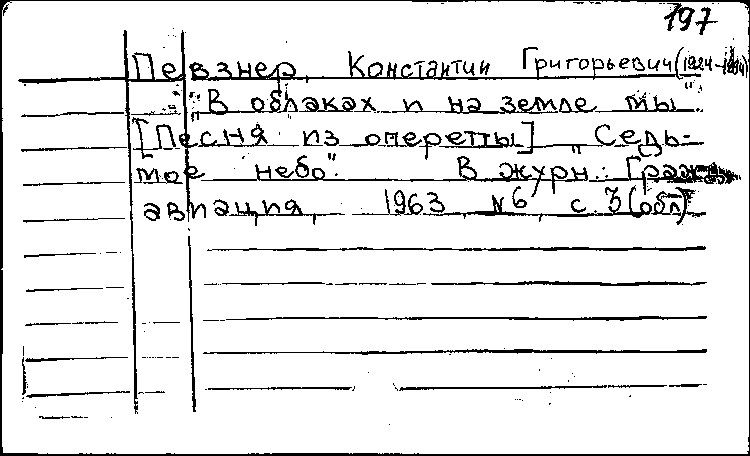 197
Певзнер, Константин Григорьевич (1924-1994)
"В облаках и на земле мы".
[Песня из оперетты] "Седь-
мое небо". В журн.: Граж
авиация, 1963, №6, с. 3 (обл)